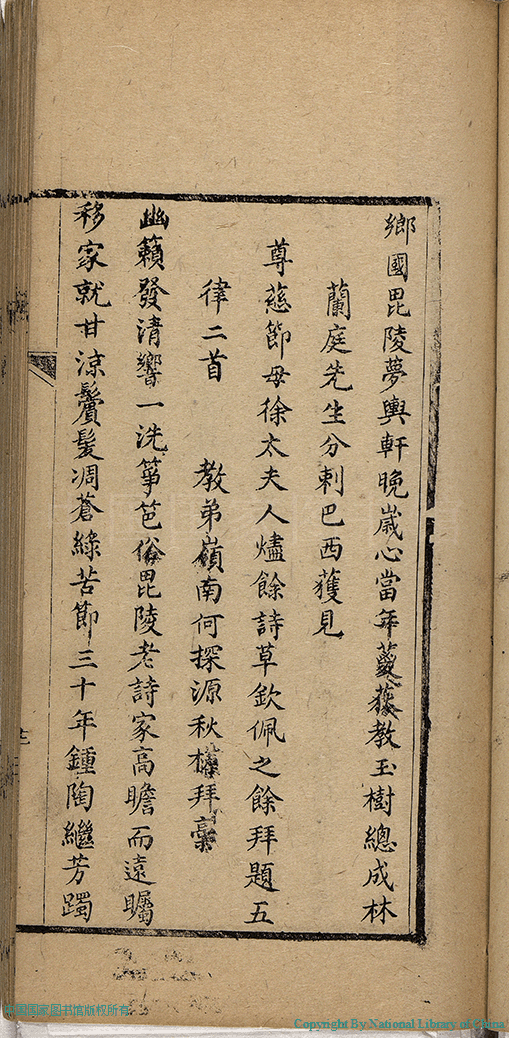 鄉國毘陵夢輿軒晚歲心當年蔆教玉樹總成林
蘭庭先生分刺巴西獲見
尊慈節母徐太夫人燼餘詩草欽佩之餘拜題五
律二首 教弟嶺南何探源秋槎拜稾
幽籟發清響一洗箏笆俗毘陵老詩家高瞻而遠矚
移家就甘涼鬢髮凋蒼綠苦節三十年鍾陶繼芳躅
中国国家图书馆版权所有
Copyright By National Library of China